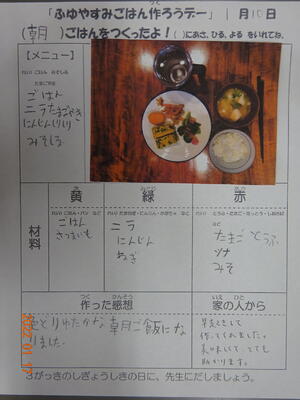 「ふゆやすみごはん作ろうデー」 1月10日
(朝)ごはんをつくったよ! ( )にあさ、ひる、よるをいれてね。
【メニュー】
ごはん
ニラたまごやき
にんじんしりしり
みそしる
黄
緑
赤
材料
ごはん
さつまいも
ニラ
にんじん
ねぎ
たまご とうふ
ツナ
みそ
作った感想
家の人から
色とりゆたかな朝ご飯にな
りました。
作ってくれました。
美味しくてとても
助かります。
3がっきのしぎょうしきの日に、先生にだしましょう。